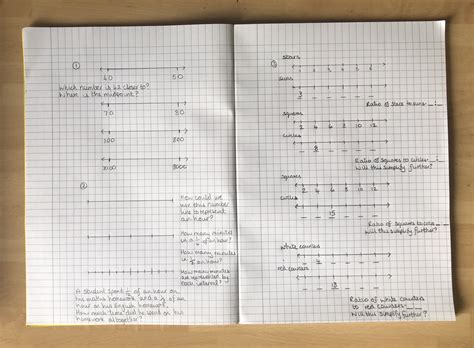 ①
40 50
Which number is 62 closer to?
Where is the midpoint?
70 80
700 800
7000 8000
②
How could we
use this number
line to represent
an hour?
How many minutes
in
of an hour?
How many minutes
in
an hour?
How many minutes
are represented by
each interval?
A student spent of an hour on
his maths homework and a of an
hour on his English homework.
How much time did he spend on his
homework altogether?
③
stars
1 2 3 4 5 6
suns
3 _ _ _ _ _
Ratio of stars to suns _:_
squares
2 4 6 8 10 12
circles
_ 8 _ _ _ _
Ratio of squares to circles _:_
Will this simplify further?
squares
2 4 6 8 10 12
circles
_ _ 15 _ _ _
Ratio of squares to
Will this simplify further?
white counters
_ 8 _ _ _ _
red counters
_ _ 18 _ _ _
Ratio of white counters
to red counters _:_
Will this simplify further?